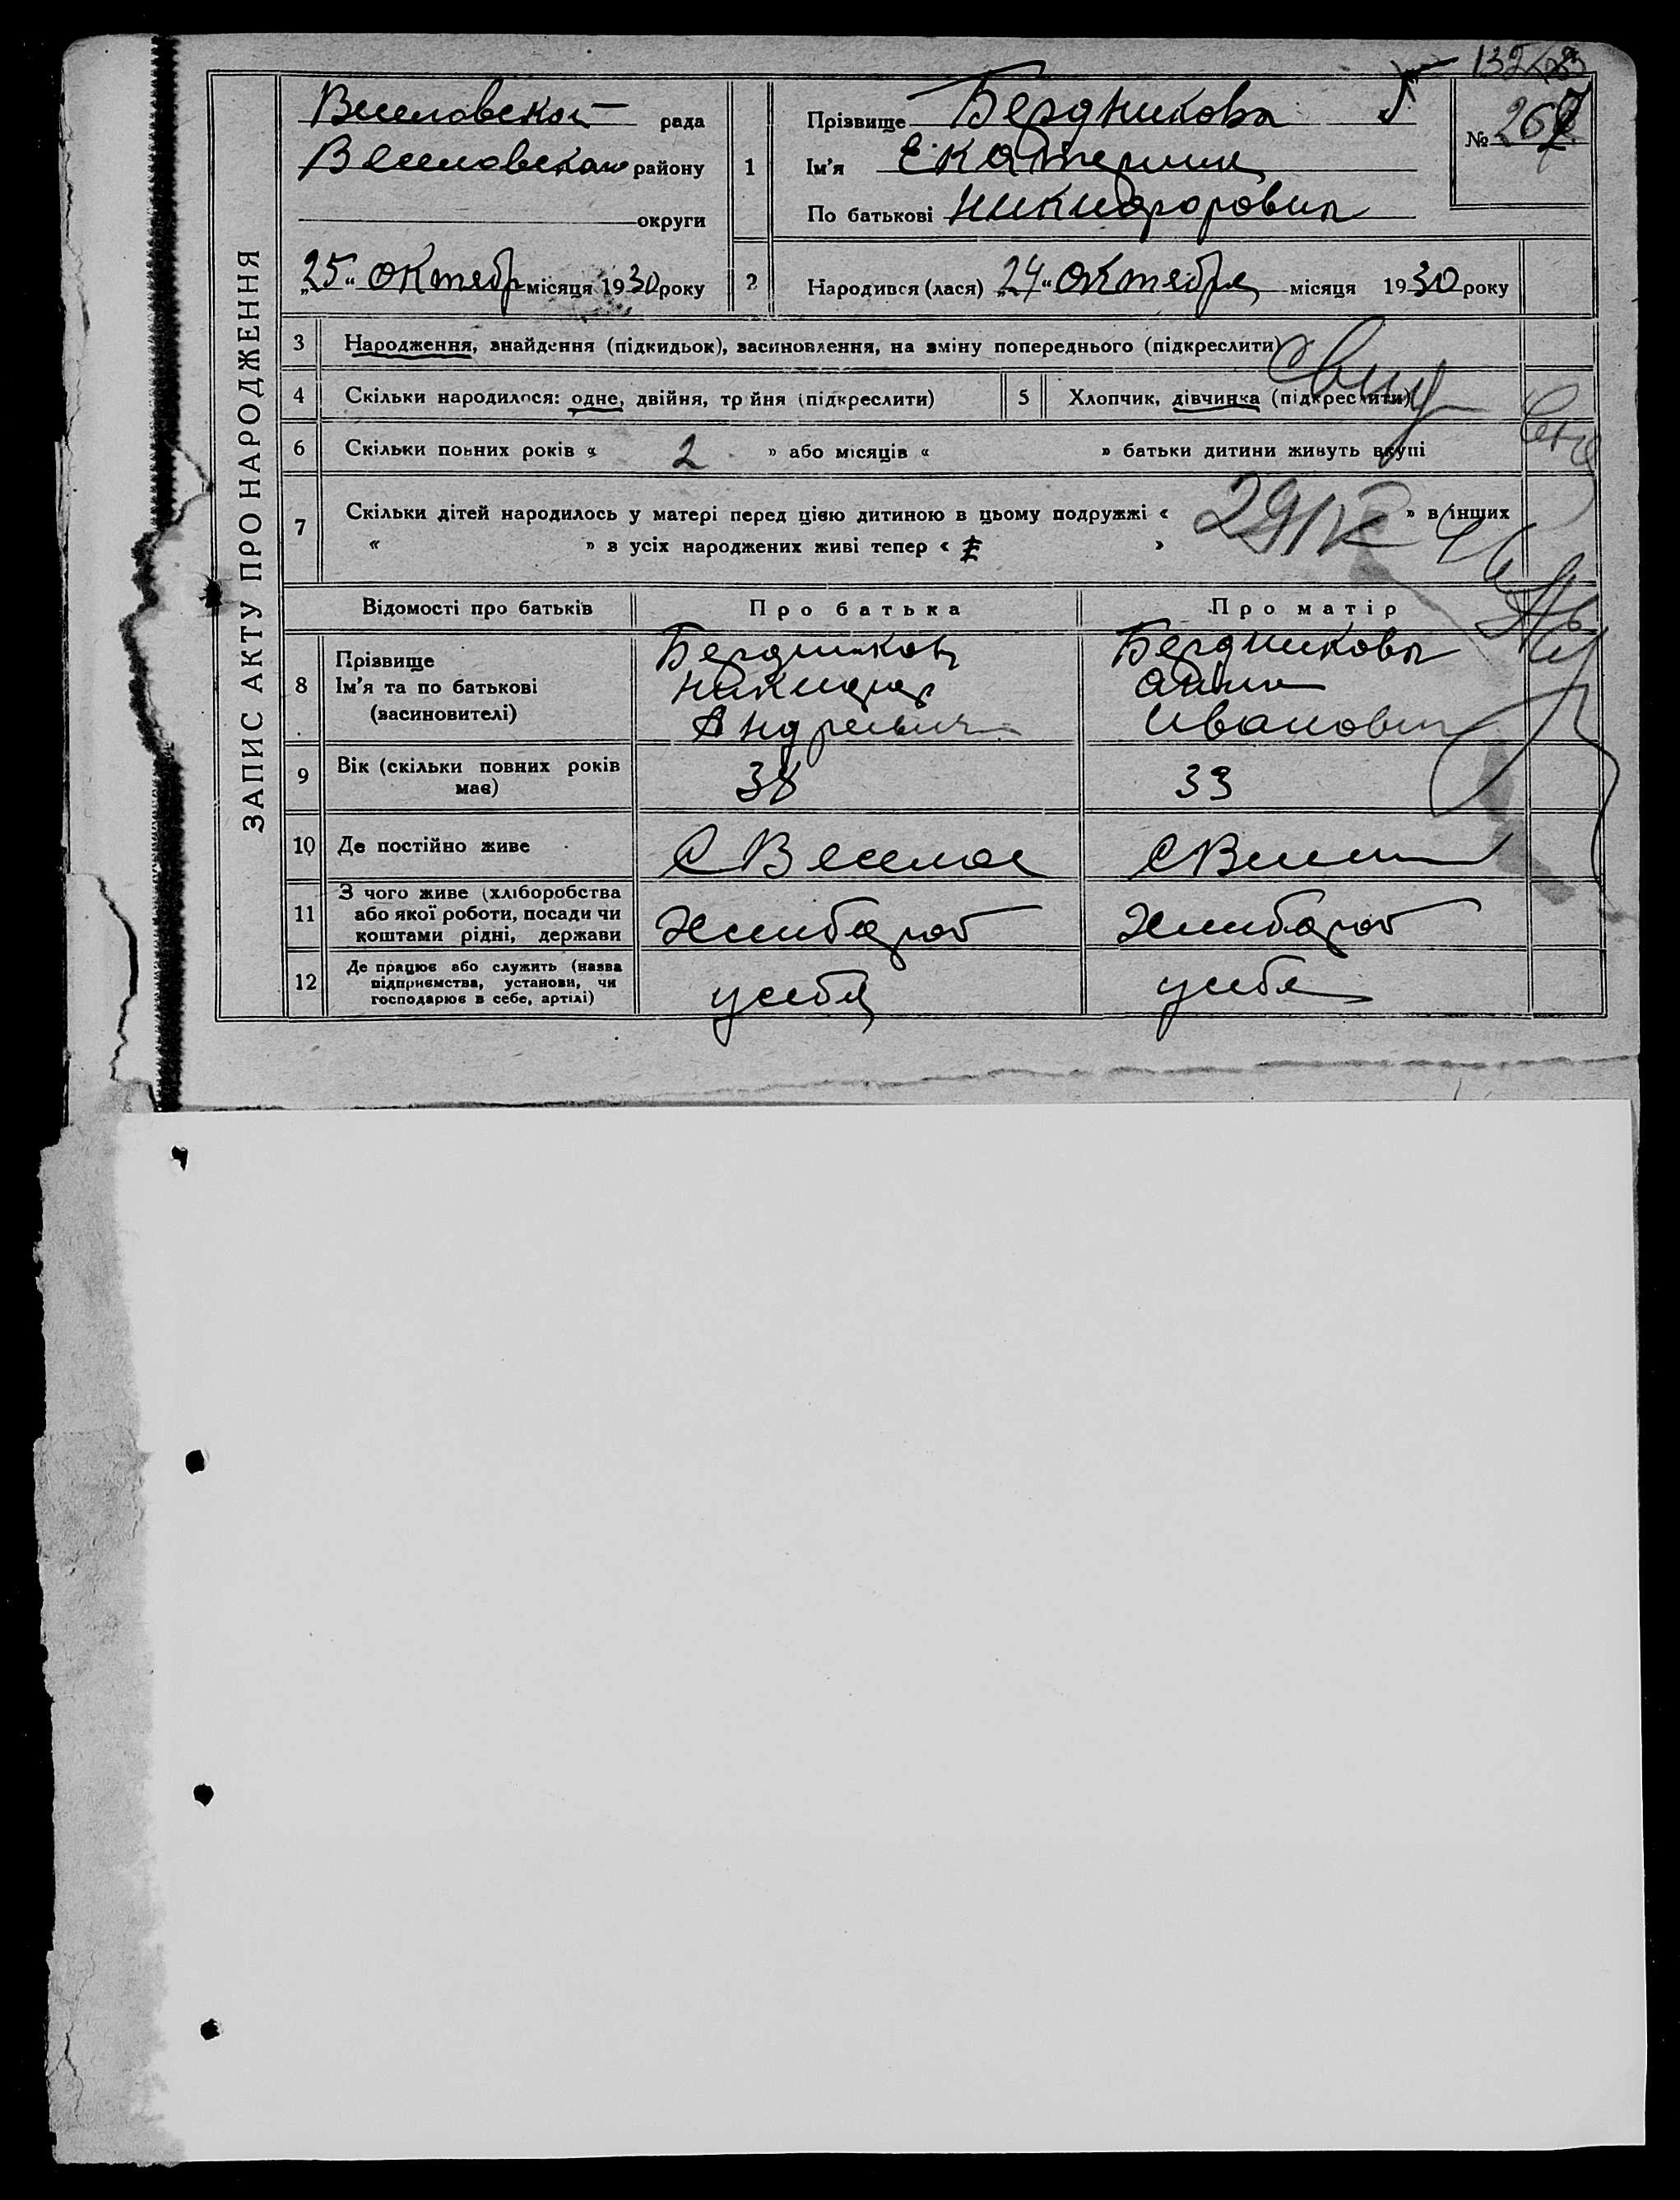 ЗАПИС АКТУ ПРО НАРОДЖЕННЯ
Веселовской рада
Веселовского району
округи
„25“ Октябр місяця 1930 року
1
Прізвище Бердникова
Ім'я Екатерина
По батькові Никифоровна
№ 267
2
Народився (лася) „24“ Октября місяця 1930 року
3 Народження, знайдення (підкидьок), засиновлення, на зміну попереднього (підкреслити)
4 Скільки народилося: одне, двійня, тр йня (підкреслити)
5 Хлопчик, дівчинка (підкреслити)
6 Скільки повних років « 2 » або місяців « » батьки дитини живуть вкупі
7 Скільки дітей народилось у матері перед цією дитиною в цьому подружжі « » в інших
« » з усіх народжених живі тепер « »
Відомості про батьків Про батька Про матір
8 Прізвище
Ім'я та по батькові
(засиновителі)
Бердников
Никифор
Андреевич
Бердникова
Анна
Ивановна
9 Вік (скільки повних років має) 38 33
10 Де постійно живе С Веселое С
11 З чого живе (хліборобства
або якої роботи, посади чи
коштами рідні, держави
Хлибароб Хлибароб
12 Де працює або служить (назва
підприємства, установи, чи
господарює в себе, артілі)
у себя у себя